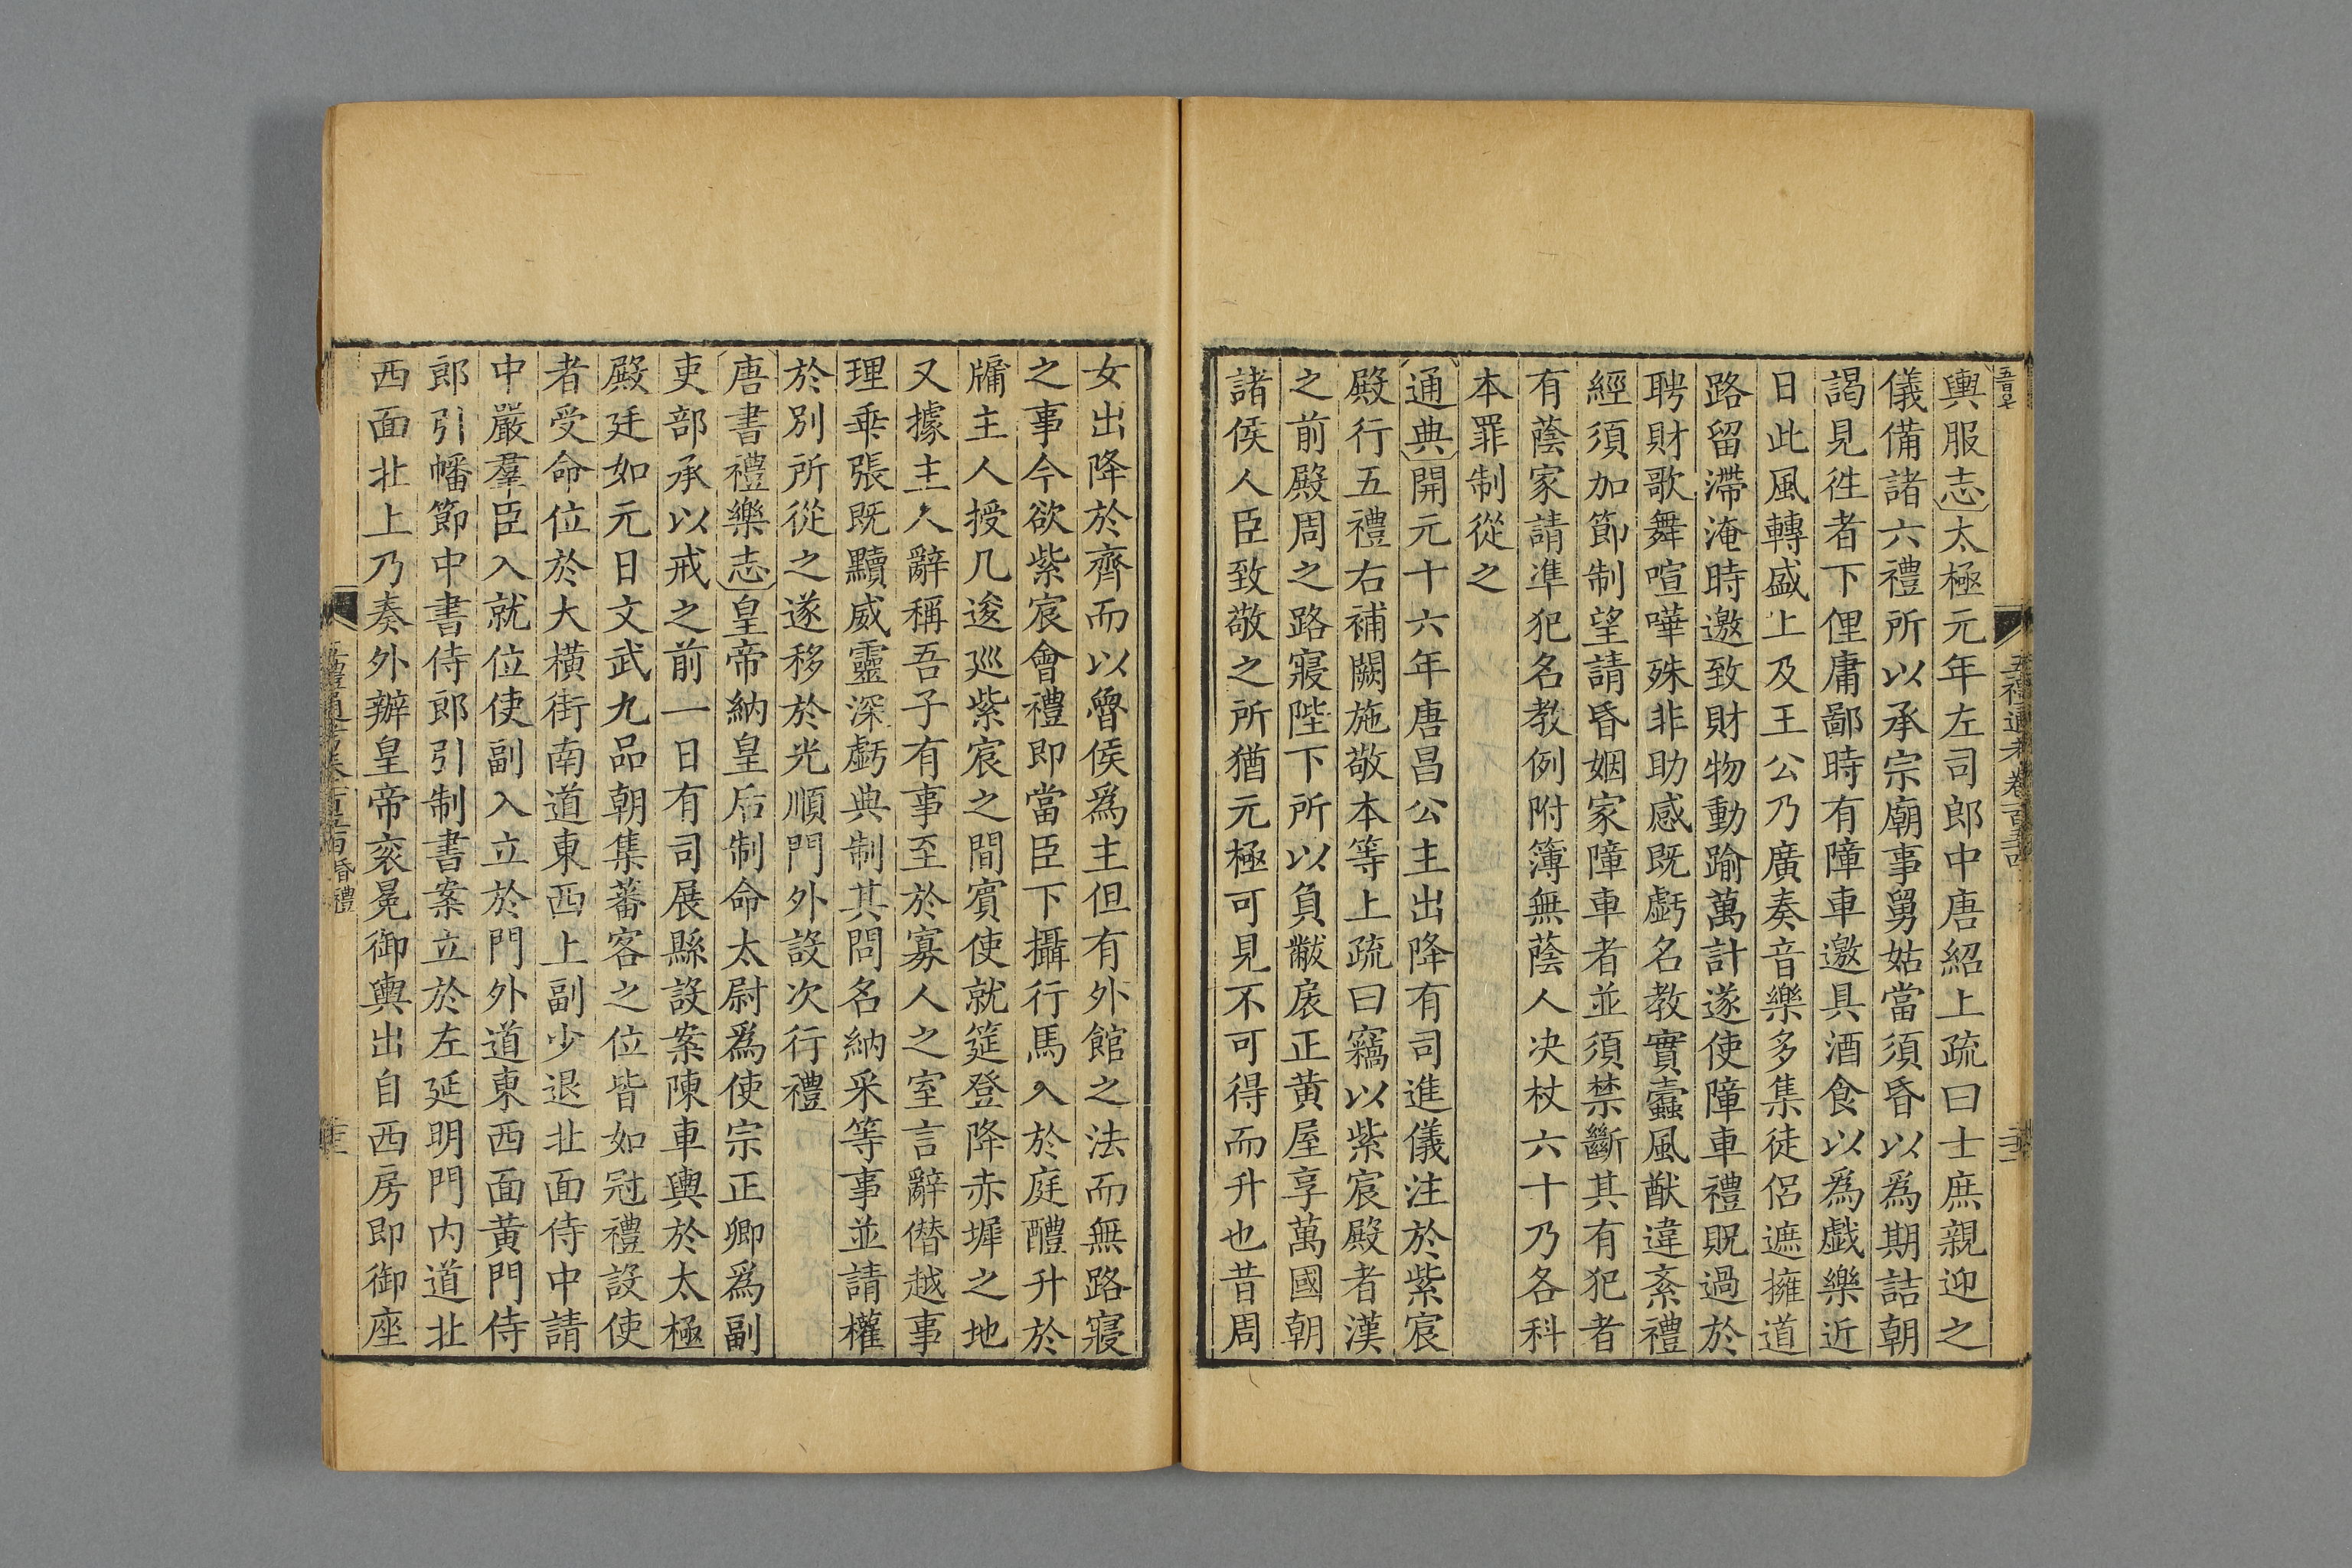 輿服志太極元年左司郎中唐紹上疏曰士庶親迎之
儀備諸六禮所以承宗廟事舅姑當須昏以為期詰朝
謁見徃者下俚庸鄙時有障車邀具酒食以為戲樂近
日此風轉盛上及王公乃廣奏音樂多集徒侶遮擁道
路留滯淹時邀致財物動踰萬計遂使障車禮貺過於
聘財歌舞喧嘩殊非助感既虧名教實蠹風猷違紊禮
經須加節制望請昏姻家障車者並須禁斷其有犯者
有蔭家請凖犯名教例附簿無蔭人决杖六十乃各科
本罪制從之
通典開元十六年唐昌公主出降有司進儀注於紫宸
殿行五禮右補闕施敬本等上疏曰竊以紫宸殿者漢
之前殿周之路寢陛下所以負黻扆正黃屋享萬國朝
諸侯人臣致敬之所猶元極可見不可得而升也昔周
女出降於齊而以魯侯爲主但有外館之法而無路寢
之事今欲紫宸會禮即當臣下攝行馬入於庭醴升於
牖主人授几逡巡紫宸之間賓使就筵登降赤墀之地
又據主人辭稱吾子有事至於寡人之室言辭僣越事
理乖張既黷威靈深虧典制其問名納采等事並請權
於別所從之遂移於光順門外設次行禮
唐書禮樂志皇帝納皇后制命太尉爲使宗正卿爲副
吏部承以戒之前一日有司展縣設案陳車輿於太極
殿廷如元日文武九品朝集蕃客之位皆如冠禮設使
者受命位於大橫街南道東西上副少退北面侍中請
中嚴羣臣入就位使副入立於門外道東西面黃門侍
郎引幡節中書侍郎引制書案立於左延明門內道北
西面北上乃奏外辦皇帝衮冕御輿出自西房即御座
五禮通考卷
昏禮